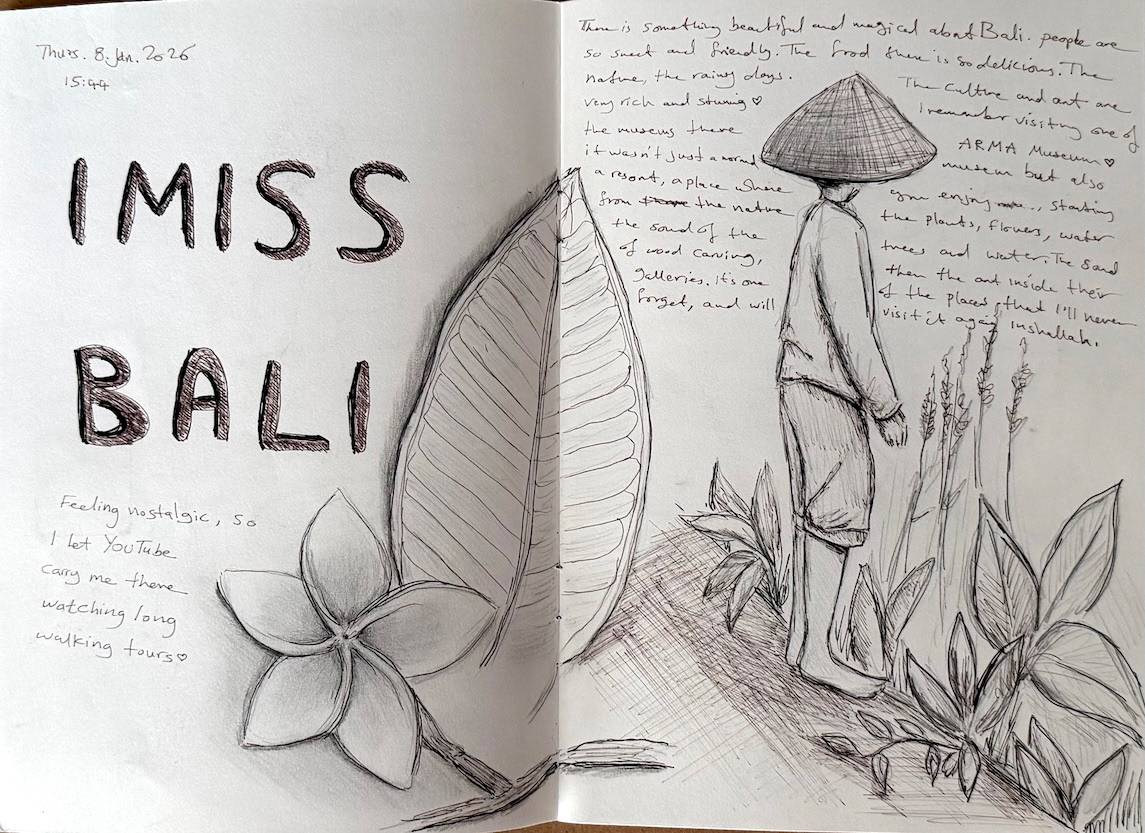 Thurs. 8. Jan. 2026
15:44
I MISS
BALI
Feeling nostalgic, so
I let YouTube
carry me there
watching long
walking tours ♡
There is something beautiful and magical about Bali. people are
so sweet and friendly. The food there is so delicious. The
nature, the rainy days. The culture and art are
very rich and stuning ♡ I remember visiting one of
the museums there ARMA Museum ♡
it wasn't just a normal museum but also
a resort, a place where you enjoy , starting
from the nature the plants, flowers, water
the sound of the trees and water. The sound
of wood carving, then the art inside their
galleries. It's one of the places that I'll never
forget, and will visit it again Inshallah.